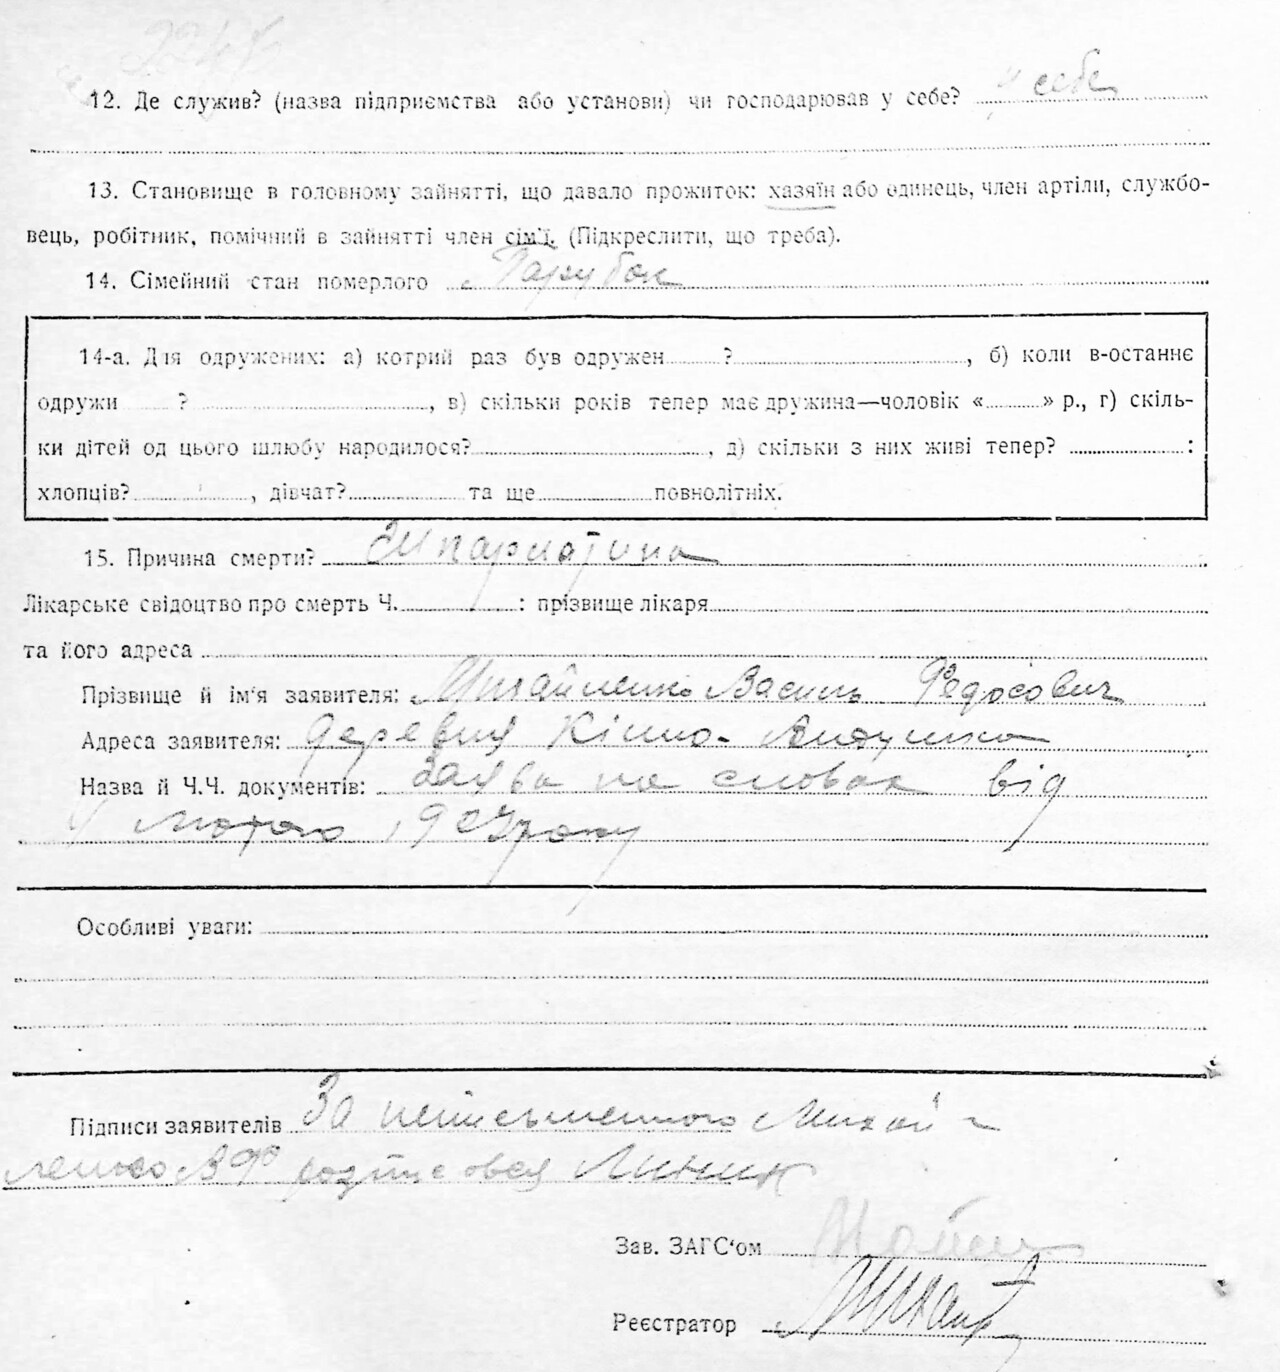 12. Де служив? (назва підприємства або установи) чи господарював у себе? у себе
13. Становище в головному зайнятті, що давало прожиток: хазяїн або одинець, член артіли, службо-
вець, робітник, помічний в зайнятті член сім'ї. (Підкреслити, що треба).
14. Сімейний стан померлого Парубок
14-а. Для одружених: а) котрий раз був одружен ? , б) коли в-останнє
одружи ? , в) скільки років тепер має дружина—чоловік « » р., г) скіль-
ки дітей од цього шлюбу народилося? , д) скільки з них живі тепер? :
хлопців? , дівчат? та ще повнолітніх.
15. Причина смерти? Шкарлатина
Лікарське свідоцтво про смерть Ч. : прізвище лікаря
та його адреса
Прізвище й ім'я заявителя: Михайленко Василь Федосович
Адреса заявителя: деревня
Назва й Ч.Ч. документів: Заява на словах від
лютого року
Особливі уваги:
Підписи заявителів За неписьменного Михай-
ленко В Ф
Зав. ЗАГС'ом
Реєстратор